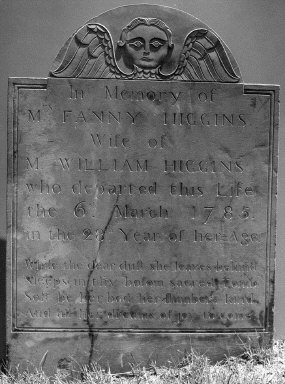 In Memory of
Mrs FANNY HIGGINS
Wife of
Mr WILLIAM HIGGINS
who departed this Life
the 6. March 1785.
in the 28 Year of her Age
While the dear dust she leaves behind
Sleeps in thy bosom sacred tomb
Soft be her bed her slumbers kind
And all her dreams of joy to come